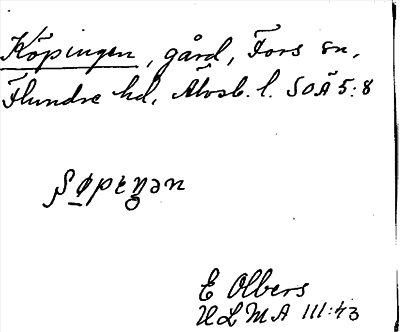 Köpingen, gård, Fors sn,
Flundre hd, Älvsb. l. SOÄ 5:8
E Olbers
ULMA III:43